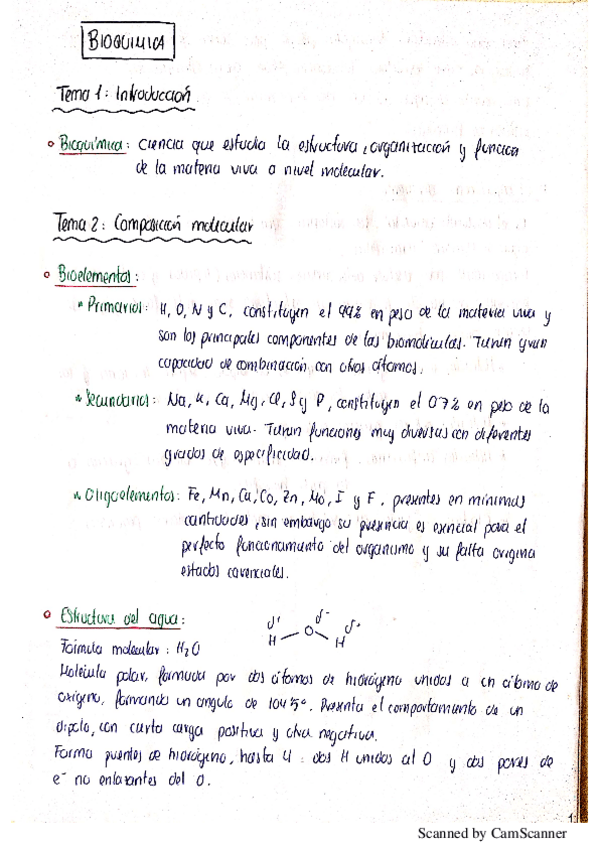 BIOQUIMICA
Tema 1: Introducción
Bioquímica: ciencia que estudia la estructura, organización y función
de la materia viva a nivel molecular.
Tema 2: Composición molecular
Bioelementos:
Primarios: H, O, N y C, constituyen el 99% en peso de la materia viva y
son los principales componentes de las biomoléculas. Tienen gran
capacidad de combinación con otros átomos.
Secundarios: Na, K, Ca, Mg, Cl, S y P, constituyen el 0'7% en peso de la
materia viva. Tienen funciones muy diversas con diferentes
grados de especificidad.
Oligoelementos: Fe, Mn, Cu, Co, Zn, Mo, I y F, presentes en mínimas
cantidades, sin embargo su presencia es esencial para el
perfecto funcionamiento del organismo y su falta origina
estados carenciales.
Estructura del agua:
δ+ δ- δ+
H O H
Fórmula molecular: H₂O
Molécula polar, formada por dos átomos de hidrógeno unidos a un átomo de
oxígeno, formando un angulo de 104'5º. Presenta el comportamiento de un
dipolo, con cierta carga positiva y otra negativa.
Forma puentes de hidrógeno, hasta 4: dos H unidos al O y dos pares de
e⁻ no enlazantes del O.
1
Scanned by CamScanner